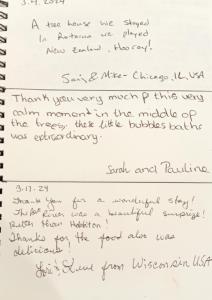 3.4.2024
A tree house we stayed
In Rotorua we played
New Zealand, Hooray!
& Mike - Chicago, IL, USA
Thank you very much for this very
calm moment in the middle of
the trees, these little bubbles baths
was extraordinary.
Sarah and Pauline
3.13.24
Thank you for a wonderful stay!
The River was a beautiful surprize!
Better than Hobbiton!
Thanks for the food also was
delicious!
from Wisconsin USA